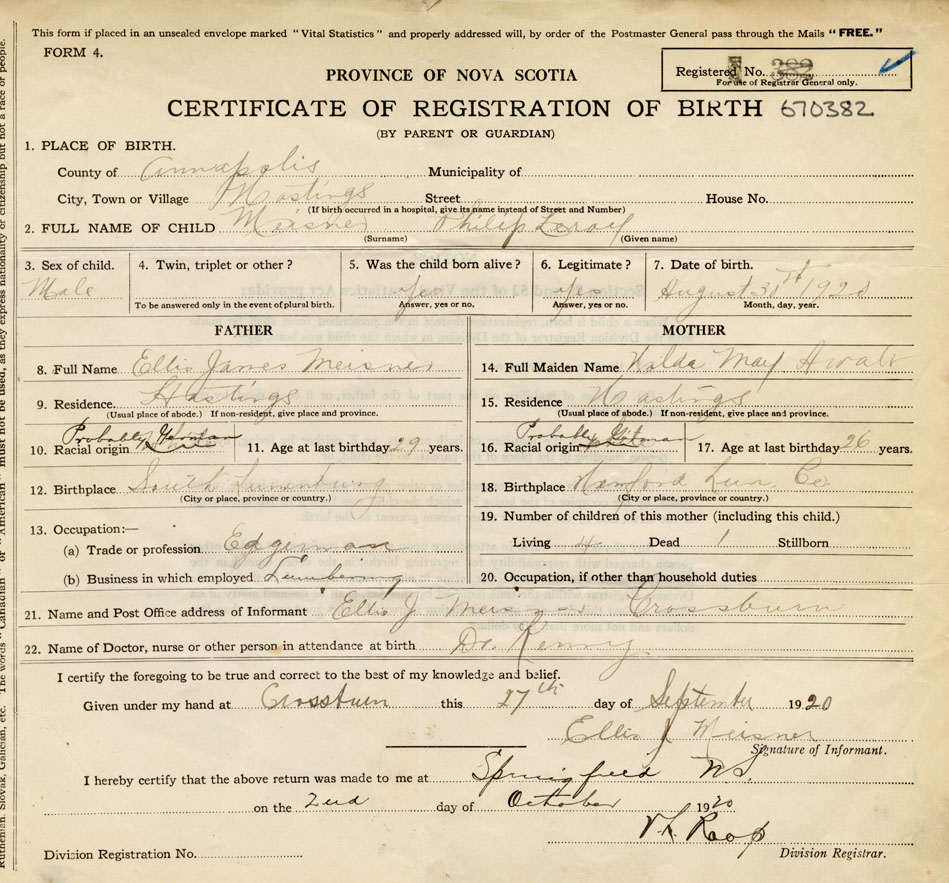 This form if placed in an unsealed envelope marked "Vital Statistics" and properly addressed will, by order of the Postmaster General pass through the Mails "FREE."
FORM 4.
Registered No. 382
For use of Registrar General only.
PROVINCE OF NOVA SCOTIA
CERTIFICATE OF REGISTRATION OF BIRTH 670382
(BY PARENT OR GUARDIAN)
1. PLACE OF BIRTH.
County of Annapolis Municipality of
City, Town or Village Hastings Street House No.
(If birth occurred in a hospital, give its name instead of Street and Number)
2. FULL NAME OF CHILD Meisner Philip Leroy
(Surname) (Given name)
3. Sex of child. 4. Twin, triplet or other? 5. Was the child born alive? 6. Legitimate? 7. Date of birth.
Male Yes Yes August 30th 1920
To be answered only in the event of plural birth. Answer, yes or no. Answer, yes or no. Month, day, year.
FATHER MOTHER
8. Full Name Ellis James Meisner
14. Full Maiden Name Hilda May Awalt
9. Residence Hastings
(Usual place of abode.) If non-resident, give place and province.
15. Residence Hastings
(Usual place of abode.) If non-resident, give place and province.
Probably German
10. Racial origin 11. Age at last birthday 29 years.
Probably German
16. Racial origin 17. Age at last birthday 26 years.
12. Birthplace South Lunenburg
(City or place, province or country.)
18. Birthplace Lun Co.
(City or place, province or country.)
13. Occupation:—
(a) Trade or profession Edgerman
(b) Business in which employed Lumbering
19. Number of children of this mother (including this child.)
Living 4 Dead 1 Stillborn
20. Occupation, if other than household duties
21. Name and Post Office address of Informant Ellis J Meisner Crossburn
22. Name of Doctor, nurse or other person in attendance at birth Dr. Kenny
I certify the foregoing to be true and correct to the best of my knowledge and belief.
Given under my hand at Crossburn this 27th day of September 1920
Ellis J Meisner
Signature of Informant.
I hereby certify that the above return was made to me at Springfield NS.
on the 2nd day of October 1920
Roop
Division Registration No.
Division Registrar.
Ruthenian, Slovak, Galician, etc. The words "Canadian" or "American" must not be used, as they express nationality or citizenship but not a race or people.